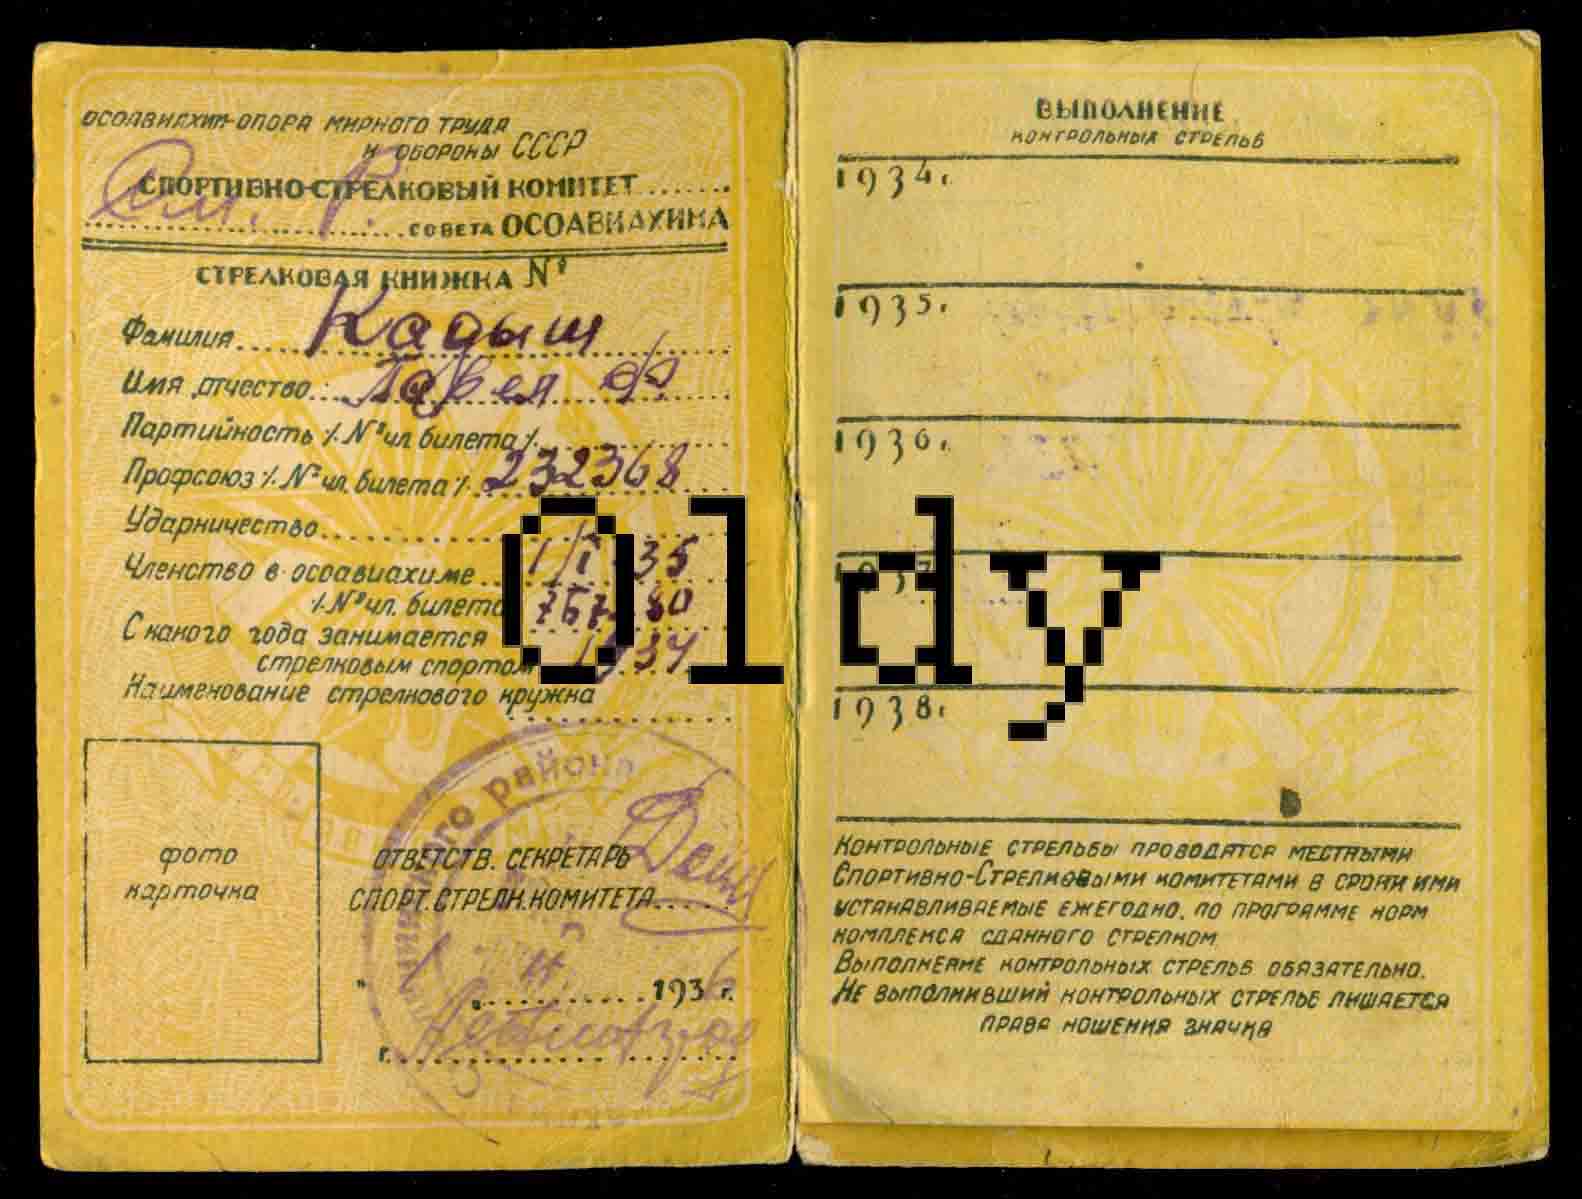 ОСОАВИАХИМ-ОПОРА МИРНОГО ТРУДА
И ОБОРОНЫ СССР
СПОРТИВНО-СТРЕЛКОВЫЙ КОМИТЕТ
СОВЕТА ОСОАВИАХИМА
СТРЕЛКОВАЯ КНИЖКА №
Фамилия Кадыш
Имя, отчество Павел Ф
Партийность /№ чл. билета/
Профсоюз /№ чл. билета/ 232368
Ударничество
Членство в осоавиахиме 1/I 35
/№ чл. билета
С какого года занимается
стрелковым спортом 1934
Наименование стрелкового кружка
фото
карточка
района
ОТВЕТСТВ. СЕКРЕТАРЬ
СПОРТ. СТРЕЛК. КОМИТЕТА
193 г.
г.
ВЫПОЛНЕНИЕ
КОНТРОЛЬНЫХ СТРЕЛЬБ
1934г.
1935г.
1936г.
1937
1938г.
КОНТРОЛЬНЫЕ СТРЕЛЬБЫ ПРОВОДЯТСЯ МЕСТНЫМИ
СПОРТИВНО-СТРЕЛКОВЫМИ КОМИТЕТАМИ В СРОКИ ИМИ
УСТАНАВЛИВАЕМЫЕ ЕЖЕГОДНО, ПО ПРОГРАММЕ НОРМ
КОМПЛЕКСА СДАННОГО СТРЕЛКОМ.
ВЫПОЛНЕНИЕ КОНТРОЛЬНЫХ СТРЕЛЬБ ОБЯЗАТЕЛЬНО.
НЕ ВЫПОЛНИВШИЙ КОНТРОЛЬНЫХ СТРЕЛЬБ ЛИШАЕТСЯ
ПРАВА НОШЕНИЯ ЗНАЧКА
Oldy